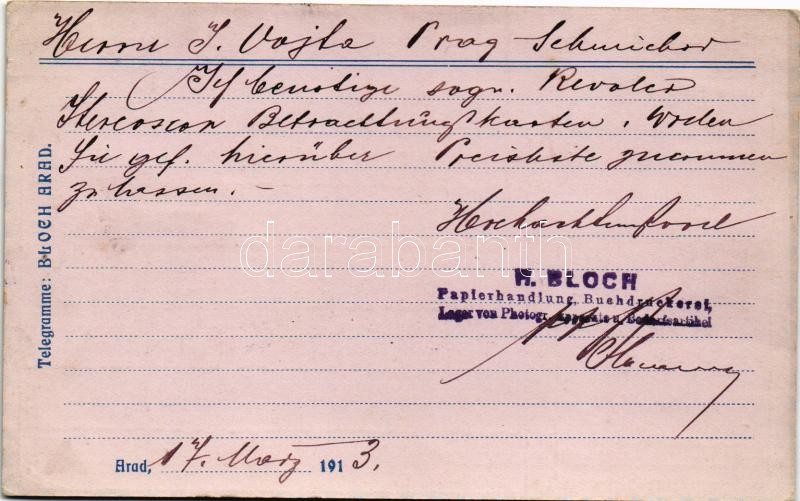 Herrn J. Vojta Prag Schmichov
Ich benötige sogn. Revolver
Stereoscop Betrachtungskasten. Wollen
Sie gef. hierüber Preisliste zukommen
zu lassen. –
Hochachtungsvoll
H. BLOCH
Papierhandlung, Buchdruckerei,
Lager von Photogr. Apparate u. Bedarfsartikel
Telegramme: BLOCH ARAD.
darabanth
Arad, 17. März 1913.